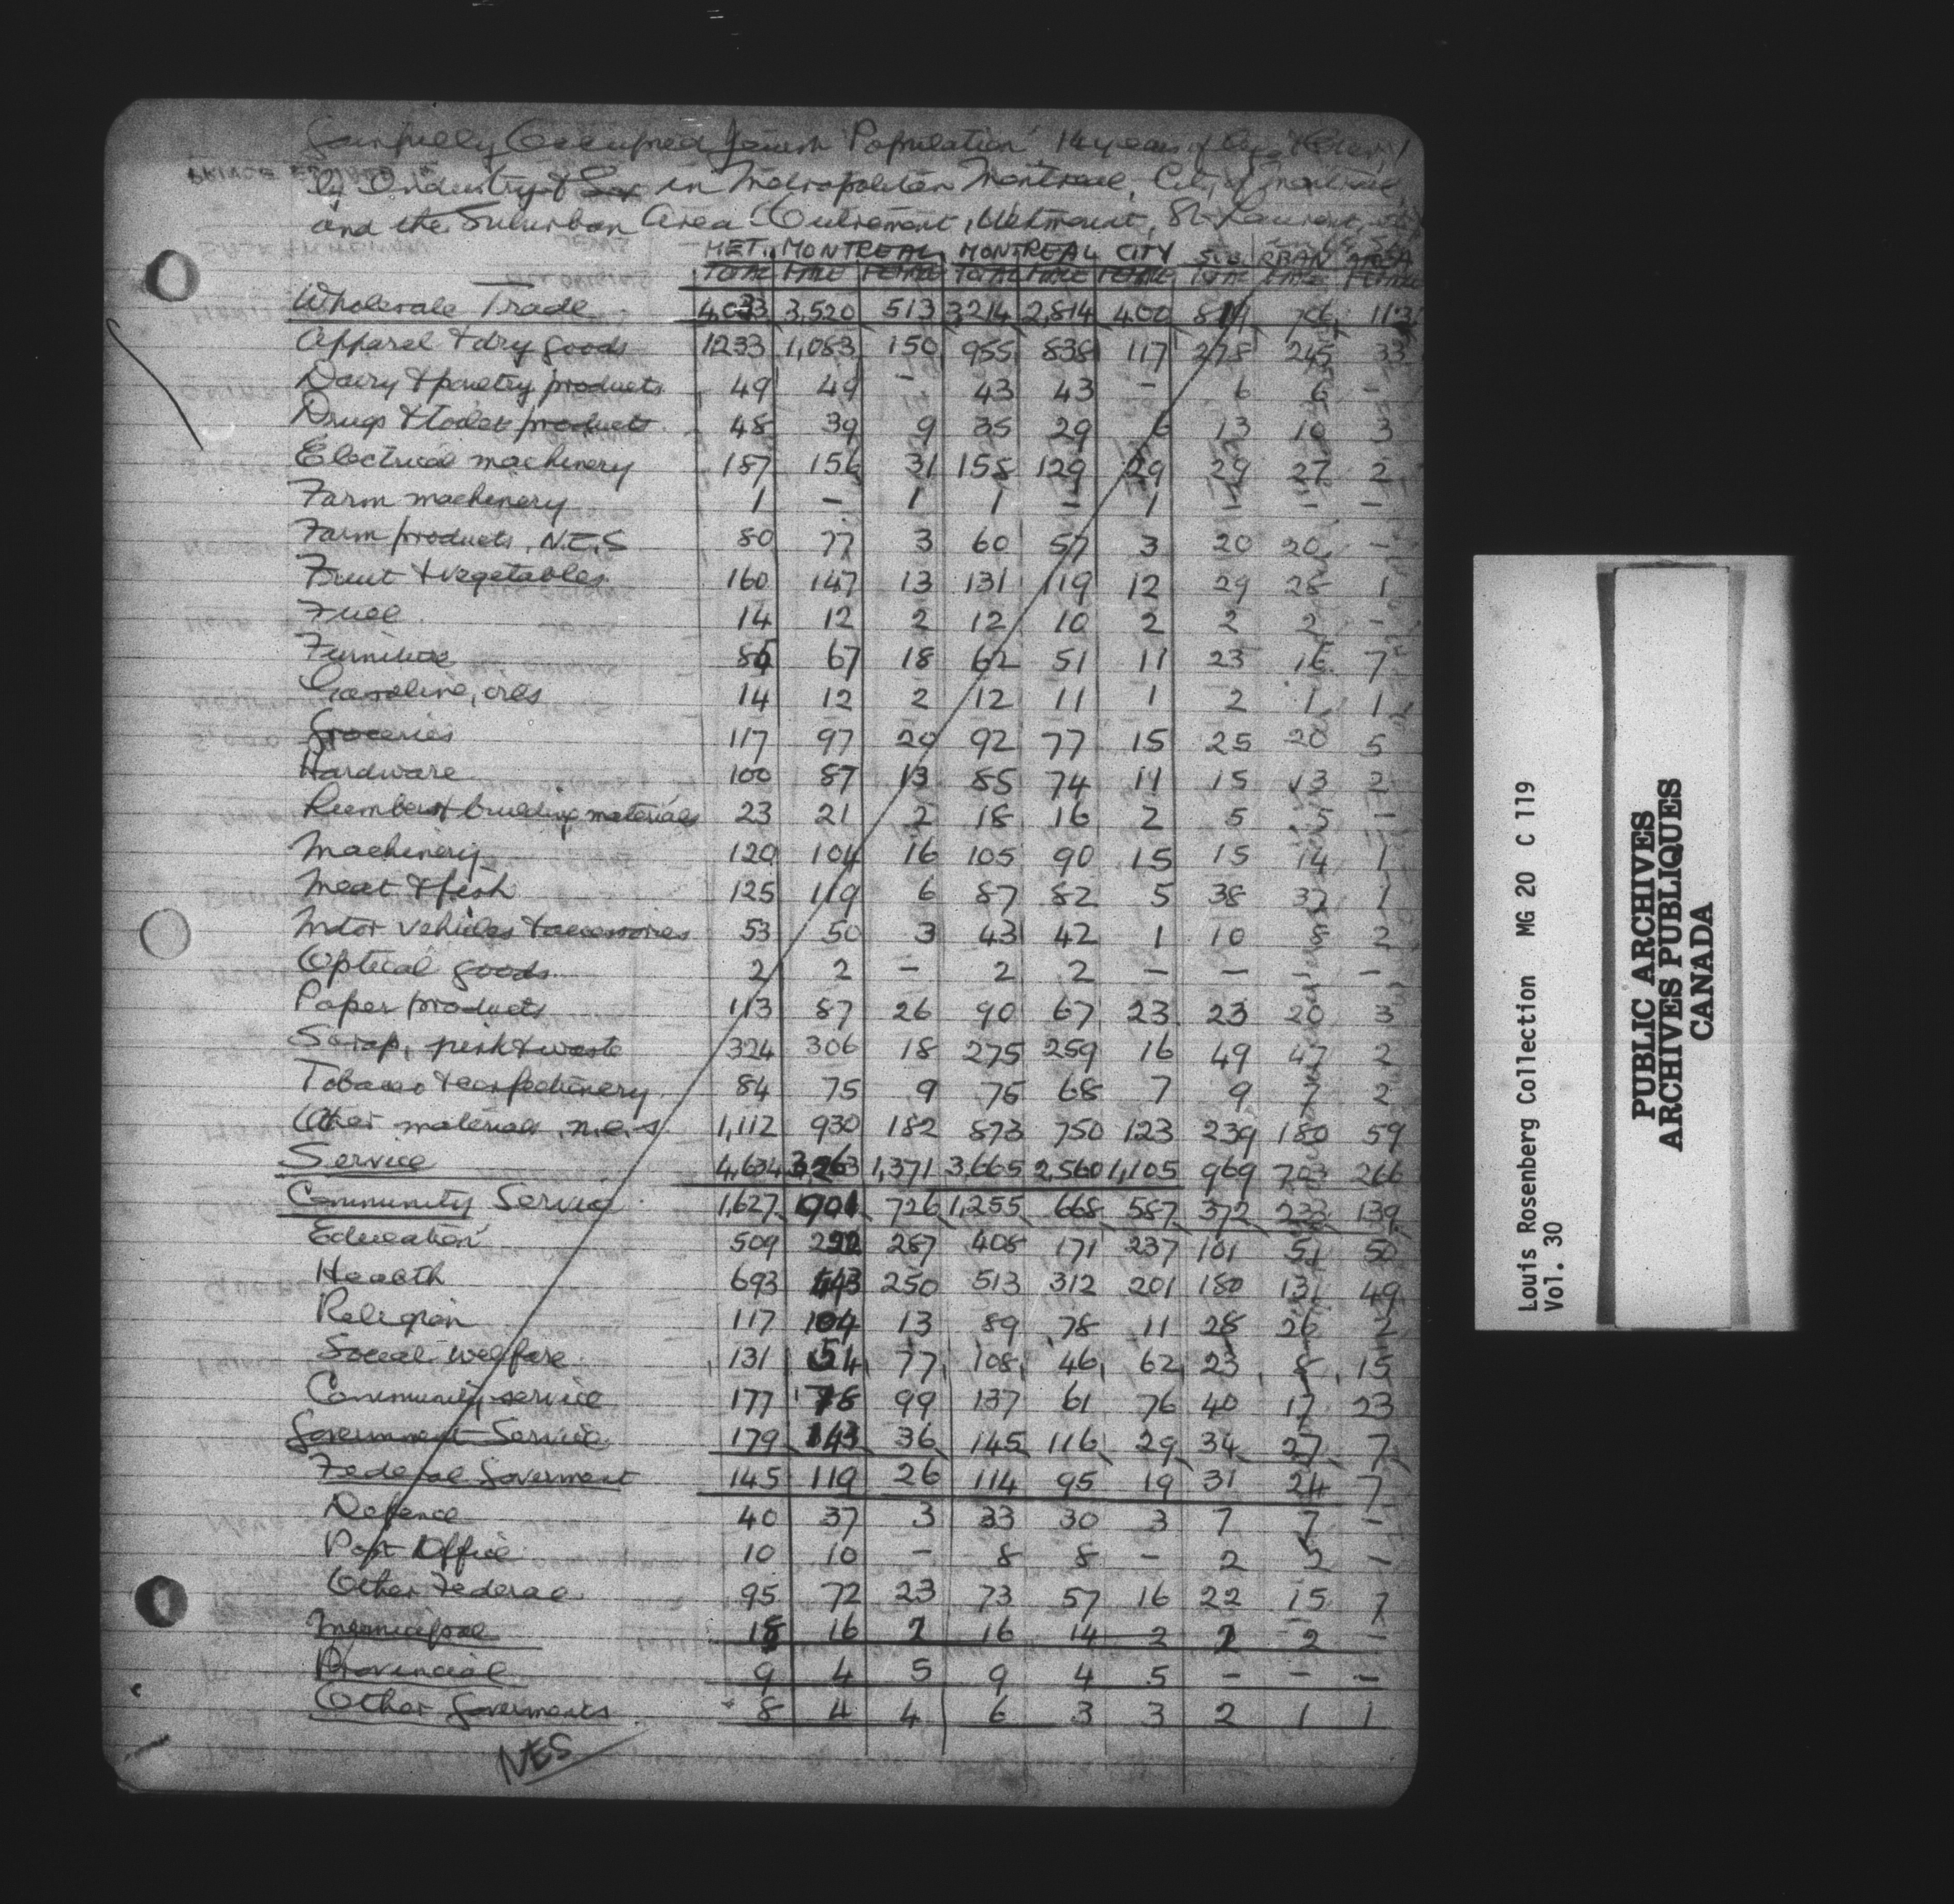 Gainfully Occupied Jewish Population 14 years of Age & Over,
by Industry & Sex in Metropolitan Montreal, City of Montreal,
and the Suburban Area (Outremont, Westmount, St Laurent,
MET. MONTREAL MONTREAL CITY SUBURBAN AREA
TOTAL MALE FEMALE TOTAL MALE FEMALE TOTAL MALE FEMALE
Wholesale Trade 4,033 3,520 513 3,214 2,814 400 819 706 113
Apparel & dry goods 1233 1,083 150 955 838 117 278 245 33
Dairy & poultry products 49 49 - 43 43 - 6 6 -
Drugs & toilet products 48 39 9 35 29 6 13 10 3
Electrical machinery 187 156 31 158 129 29 29 27 2
Farm machinery 1 - 1 1 - 1 - - -
Farm products, N.E.S 80 77 3 60 57 3 20 20 -
Fruit & vegetables 160 147 13 131 119 12 29 28 1
Fuel 14 12 2 12 10 2 2 2 -
Furniture 85 67 18 62 51 11 23 16 7
Gasoline, oils 14 12 2 12 11 1 2 1 1
Groceries 117 97 20 92 77 15 25 20 5
Hardware 100 87 13 85 74 11 15 13 2
Lumber & building materials 23 21 2 18 16 2 5 5 -
Machinery 120 104 16 105 90 15 15 14 1
Meat & fish 125 119 6 87 82 5 38 37 1
Motor vehicles & accessories 53 50 3 43 42 1 10 8 2
Optical goods 2 2 - 2 2 - - - -
Paper products 113 87 26 90 67 23 23 20 3
Scrap, junk & waste 324 306 18 275 259 16 49 47 2
Tobacco & confectionery 84 75 9 75 68 7 9 7 2
Other materials, n.e.s. 1,112 930 182 873 750 123 239 180 59
Service 4,634 3,263 1,371 3,665 2,560 1,105 969 703 266
Community Service 1,627 901 726 1,255 668 587 372 233 139
Education 509 222 287 408 171 237 101 51 50
Health 693 443 250 513 312 201 180 131 49
Religion 117 104 13 89 78 11 28 26 2
Social welfare 131 54 77 108 46 62 23 8 15
Community service 177 78 99 137 61 76 40 17 23
Government Service 179 143 36 145 116 29 34 27 7
Federal Goverment 145 119 26 114 95 19 31 24 7
Defence 40 37 3 33 30 3 7 7 -
Post Office 10 10 - 8 8 - 2 2 -
Other Federal 95 72 23 73 57 16 22 15 7
Municipal 18 16 2 16 14 2 2 2 -
Provincial 9 4 5 9 4 5 - - -
Other Goverments 8 4 4 6 3 3 2 1 1
NES
Louis Rosenberg Collection MG 20 C 119
Vol. 30
PUBLIC ARCHIVES
ARCHIVES PUBLIQUES
CANADA